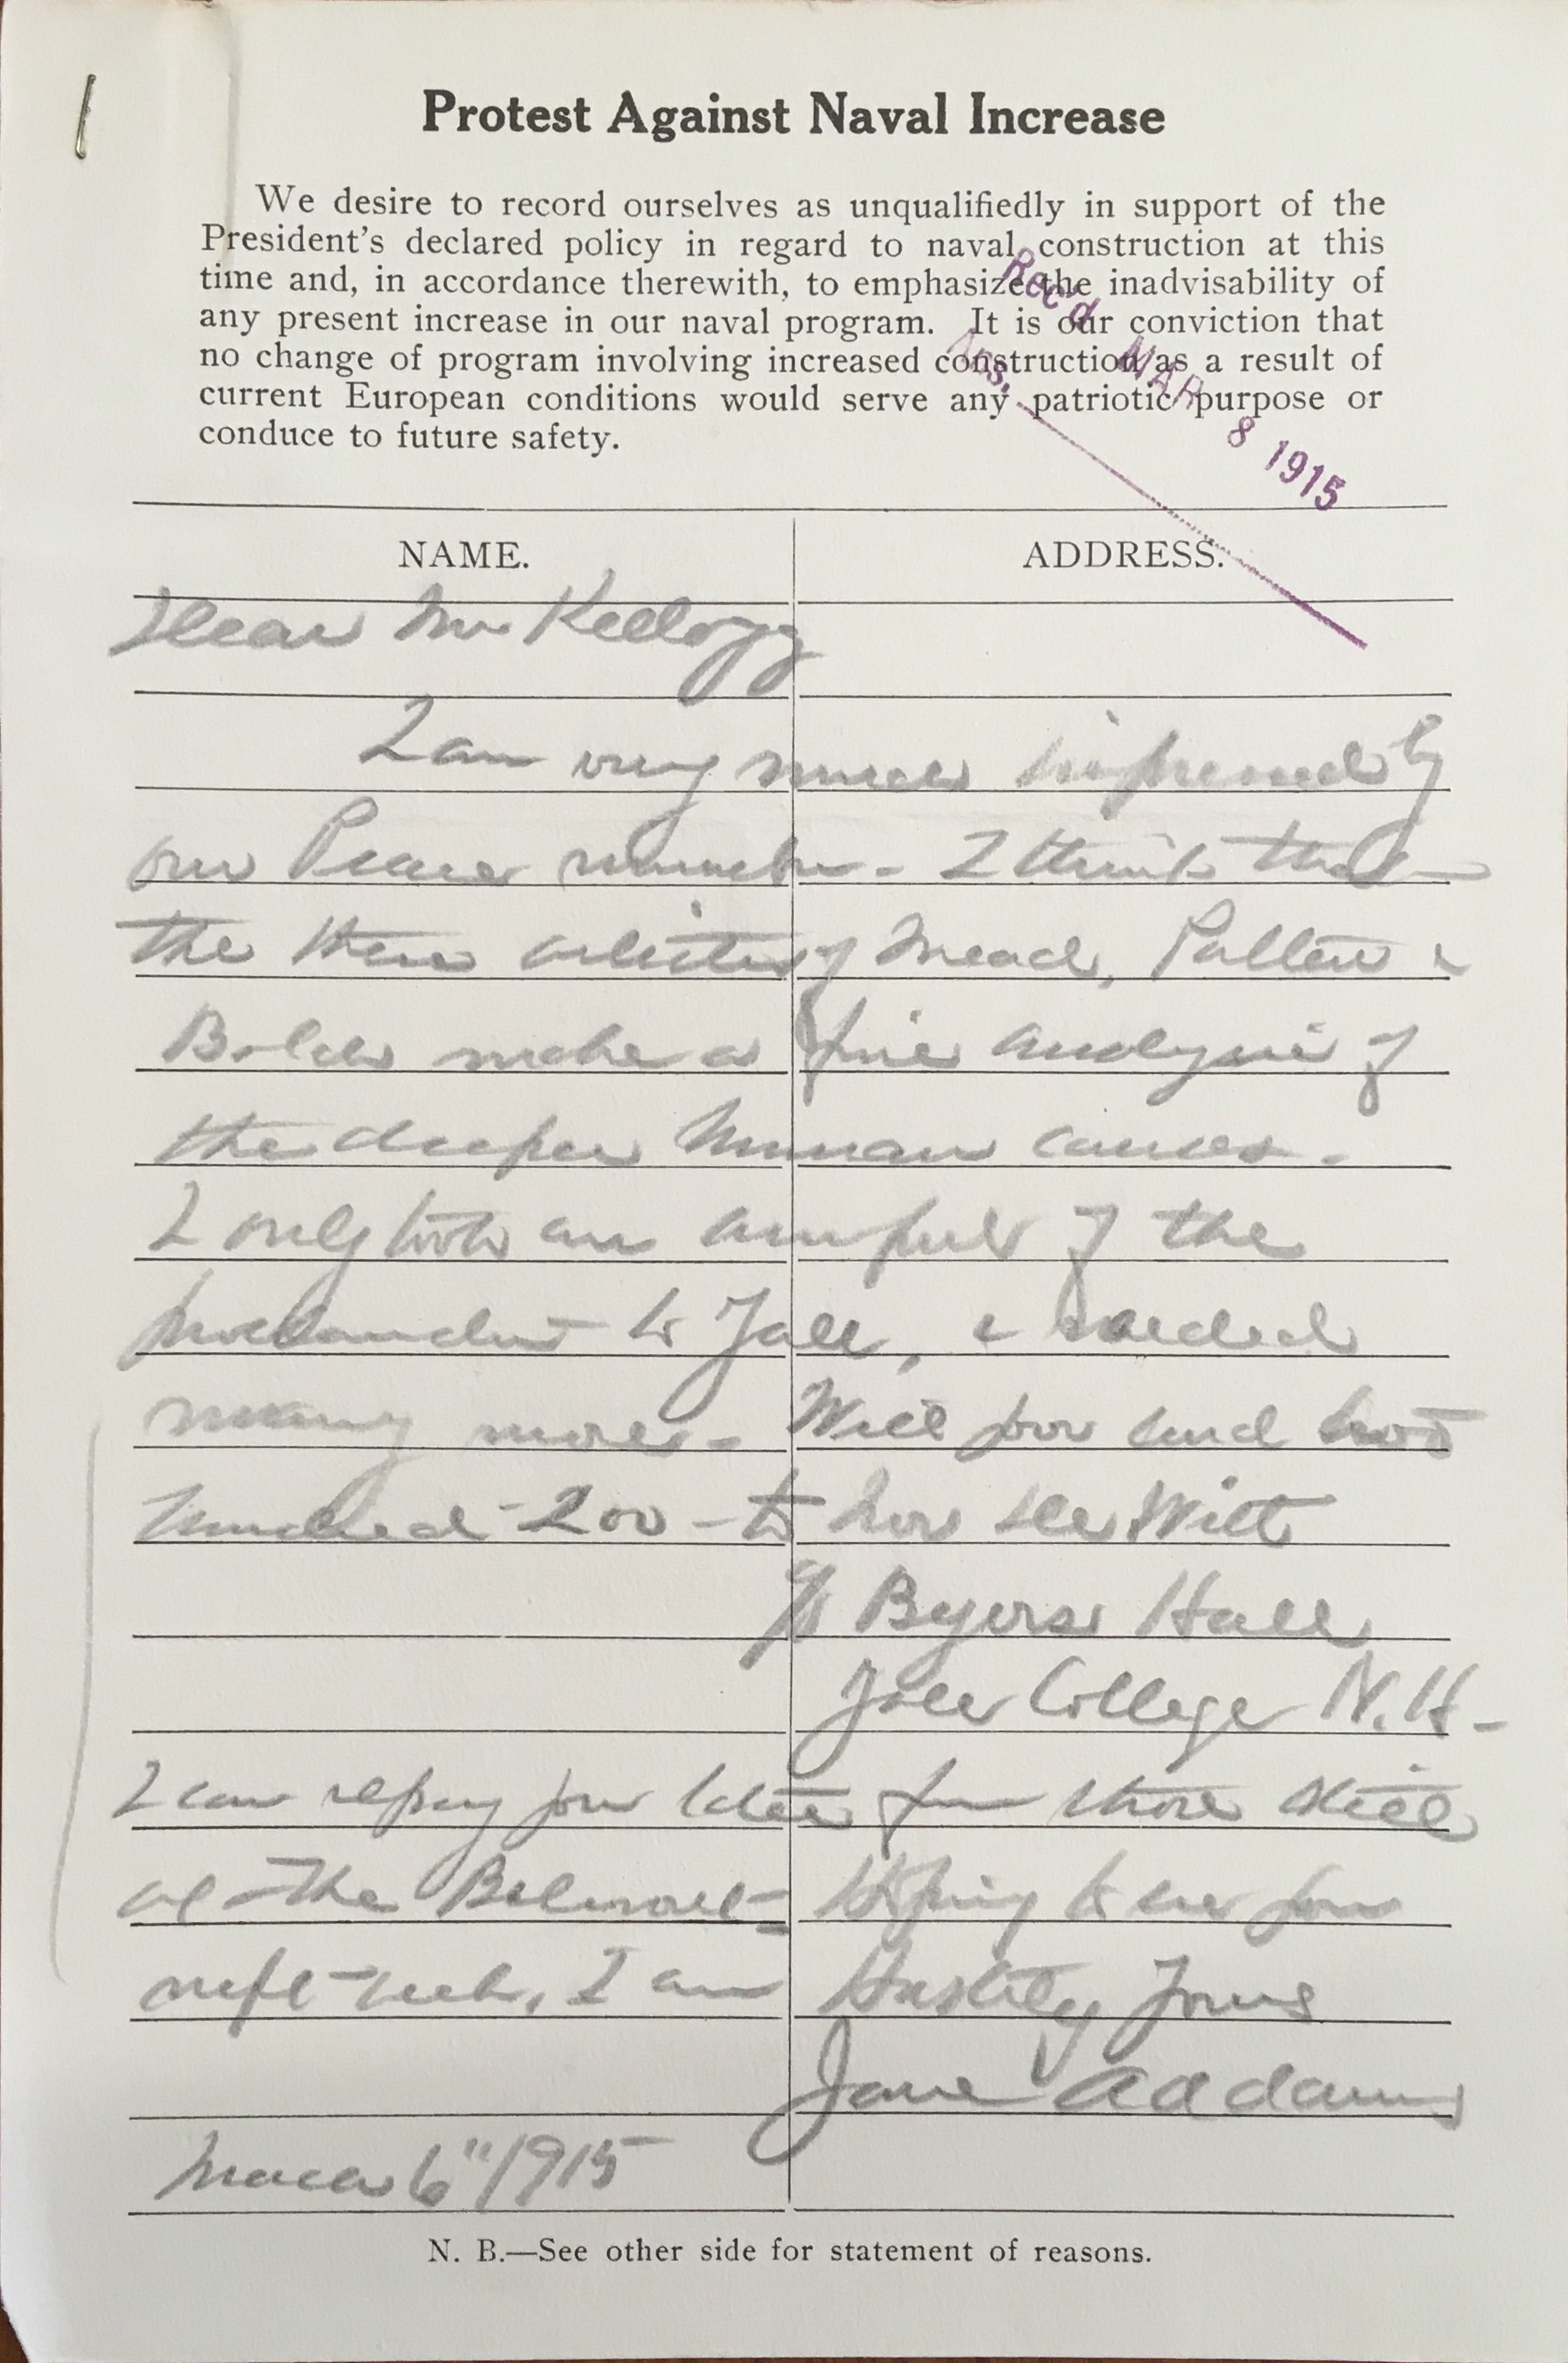 Protest Against Naval Increase
We desire to record ourselves as unqualifiedly in support of the
President's declared policy in regard to naval construction at this
time and, in accordance therewith, to emphasize the inadvisability of
any present increase in our naval program. It is our conviction that
no change of program involving increased construction as a result of
current European conditions would serve any patriotic purpose or
conduce to future safety.
Rec'd MAR 8 1915
Ans.
NAME. ADDRESS.
Dear Mr Kellogg
I am very much impressed by
our Peace number - I think that
the three articles of Mead, Patten &
make a fine analysis of
the deeper human causes -
I only took an armful of the
to Yale, & needed
many more - Will you send two
hundred - 200 - to Lew DeWitt
c/o Byers Hall
Yale College N.H -
I can repay you later from those still
at the Belmont - Hoping to see you
next week, I am Hastily Yours
Jane Addams
March 6" 1915
N. B.—See other side for statement of reasons.